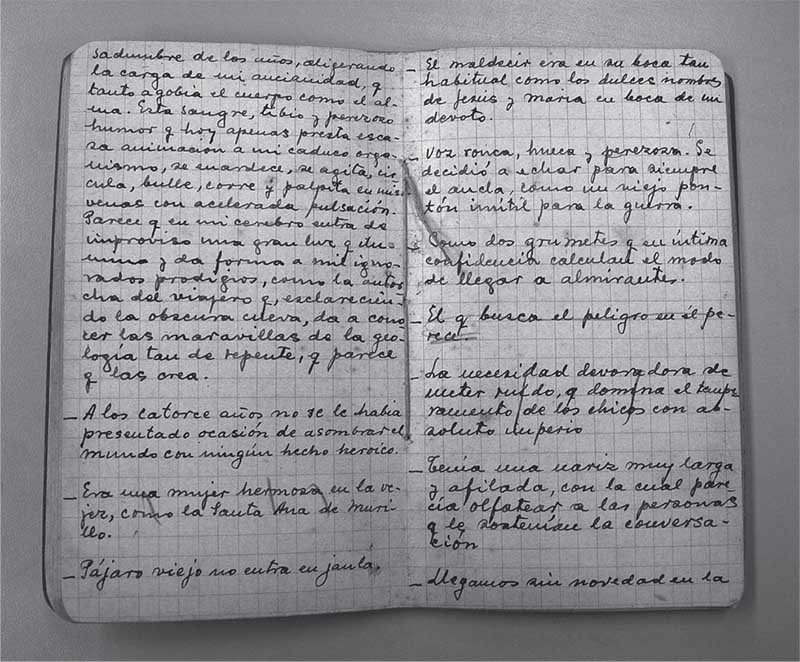 sadumbre de los años, aligerando
la carga de mi ancianidad, q
tanto agobia el cuerpo como el al-
ma. Esta sangre, tibio y perezoso
humor q hoy apenas presta esca-
sa animación a mi caduco orga-
nismo, se enardece, se agita, cir
cula, bulle, corre y palpita en mis
venas con acelerada pulsación.
Parece q en mi cerebro entra de
improviso una gran luz q ilu-
mina y da forma a mil igno-
rados prodigios, como la antor
cha del viajero q, esclarecien-
do la obscura cueva, da a cono
cer las maravillas de la geo-
logía tan de repente, q parece
q las crea.
_ A los catorce años no se le había
presentado ocasión de asombrar el
mundo con ningún hecho heroico.
_ Era una mujer hermosa en la ve-
jez, como la Santa Ana de Muri-
llo.
_ Pájaro viejo no entra en jaula.
_ El maldecir era en su boca tan
habitual como los dulces nombres
de Jesús y maria en boca de un
devoto.
_ Voz ronca, hueca y perezosa. Se
decidió a echar para siempre
el ancla, como un viejo pon-
tón inútil para la guerra.
_ Como dos grumetes q en íntima
confidencia calculan el modo
de llegar a almirante.
_ El q busca el peligro en él pe-
rece.
_ La necesidad devoradora de
meter ruido, q domina el tempe
ramento de los chicos con ab-
soluto imperio
_ Tenía una nariz muy larga
y afilada, con la cual pare
cía olfatear a las personas
q le sostenían la conversa-
ción
_ Llegamos sin novedad en la